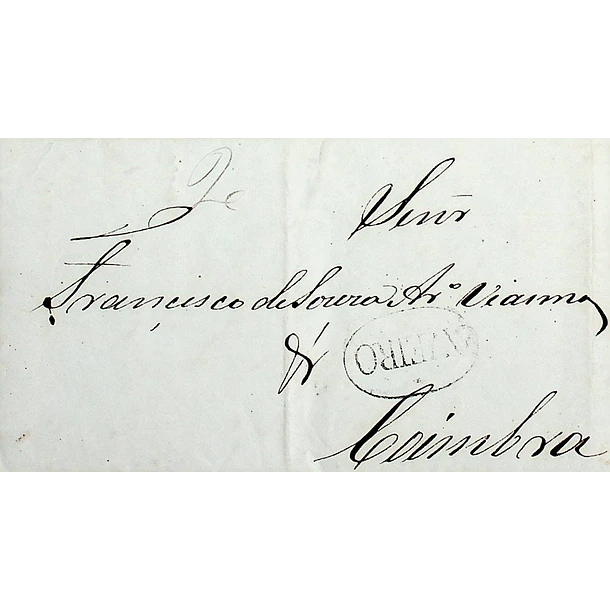 Señr
Francisco de Souza Ar.º Vianna
AVEIRO
Coimbra